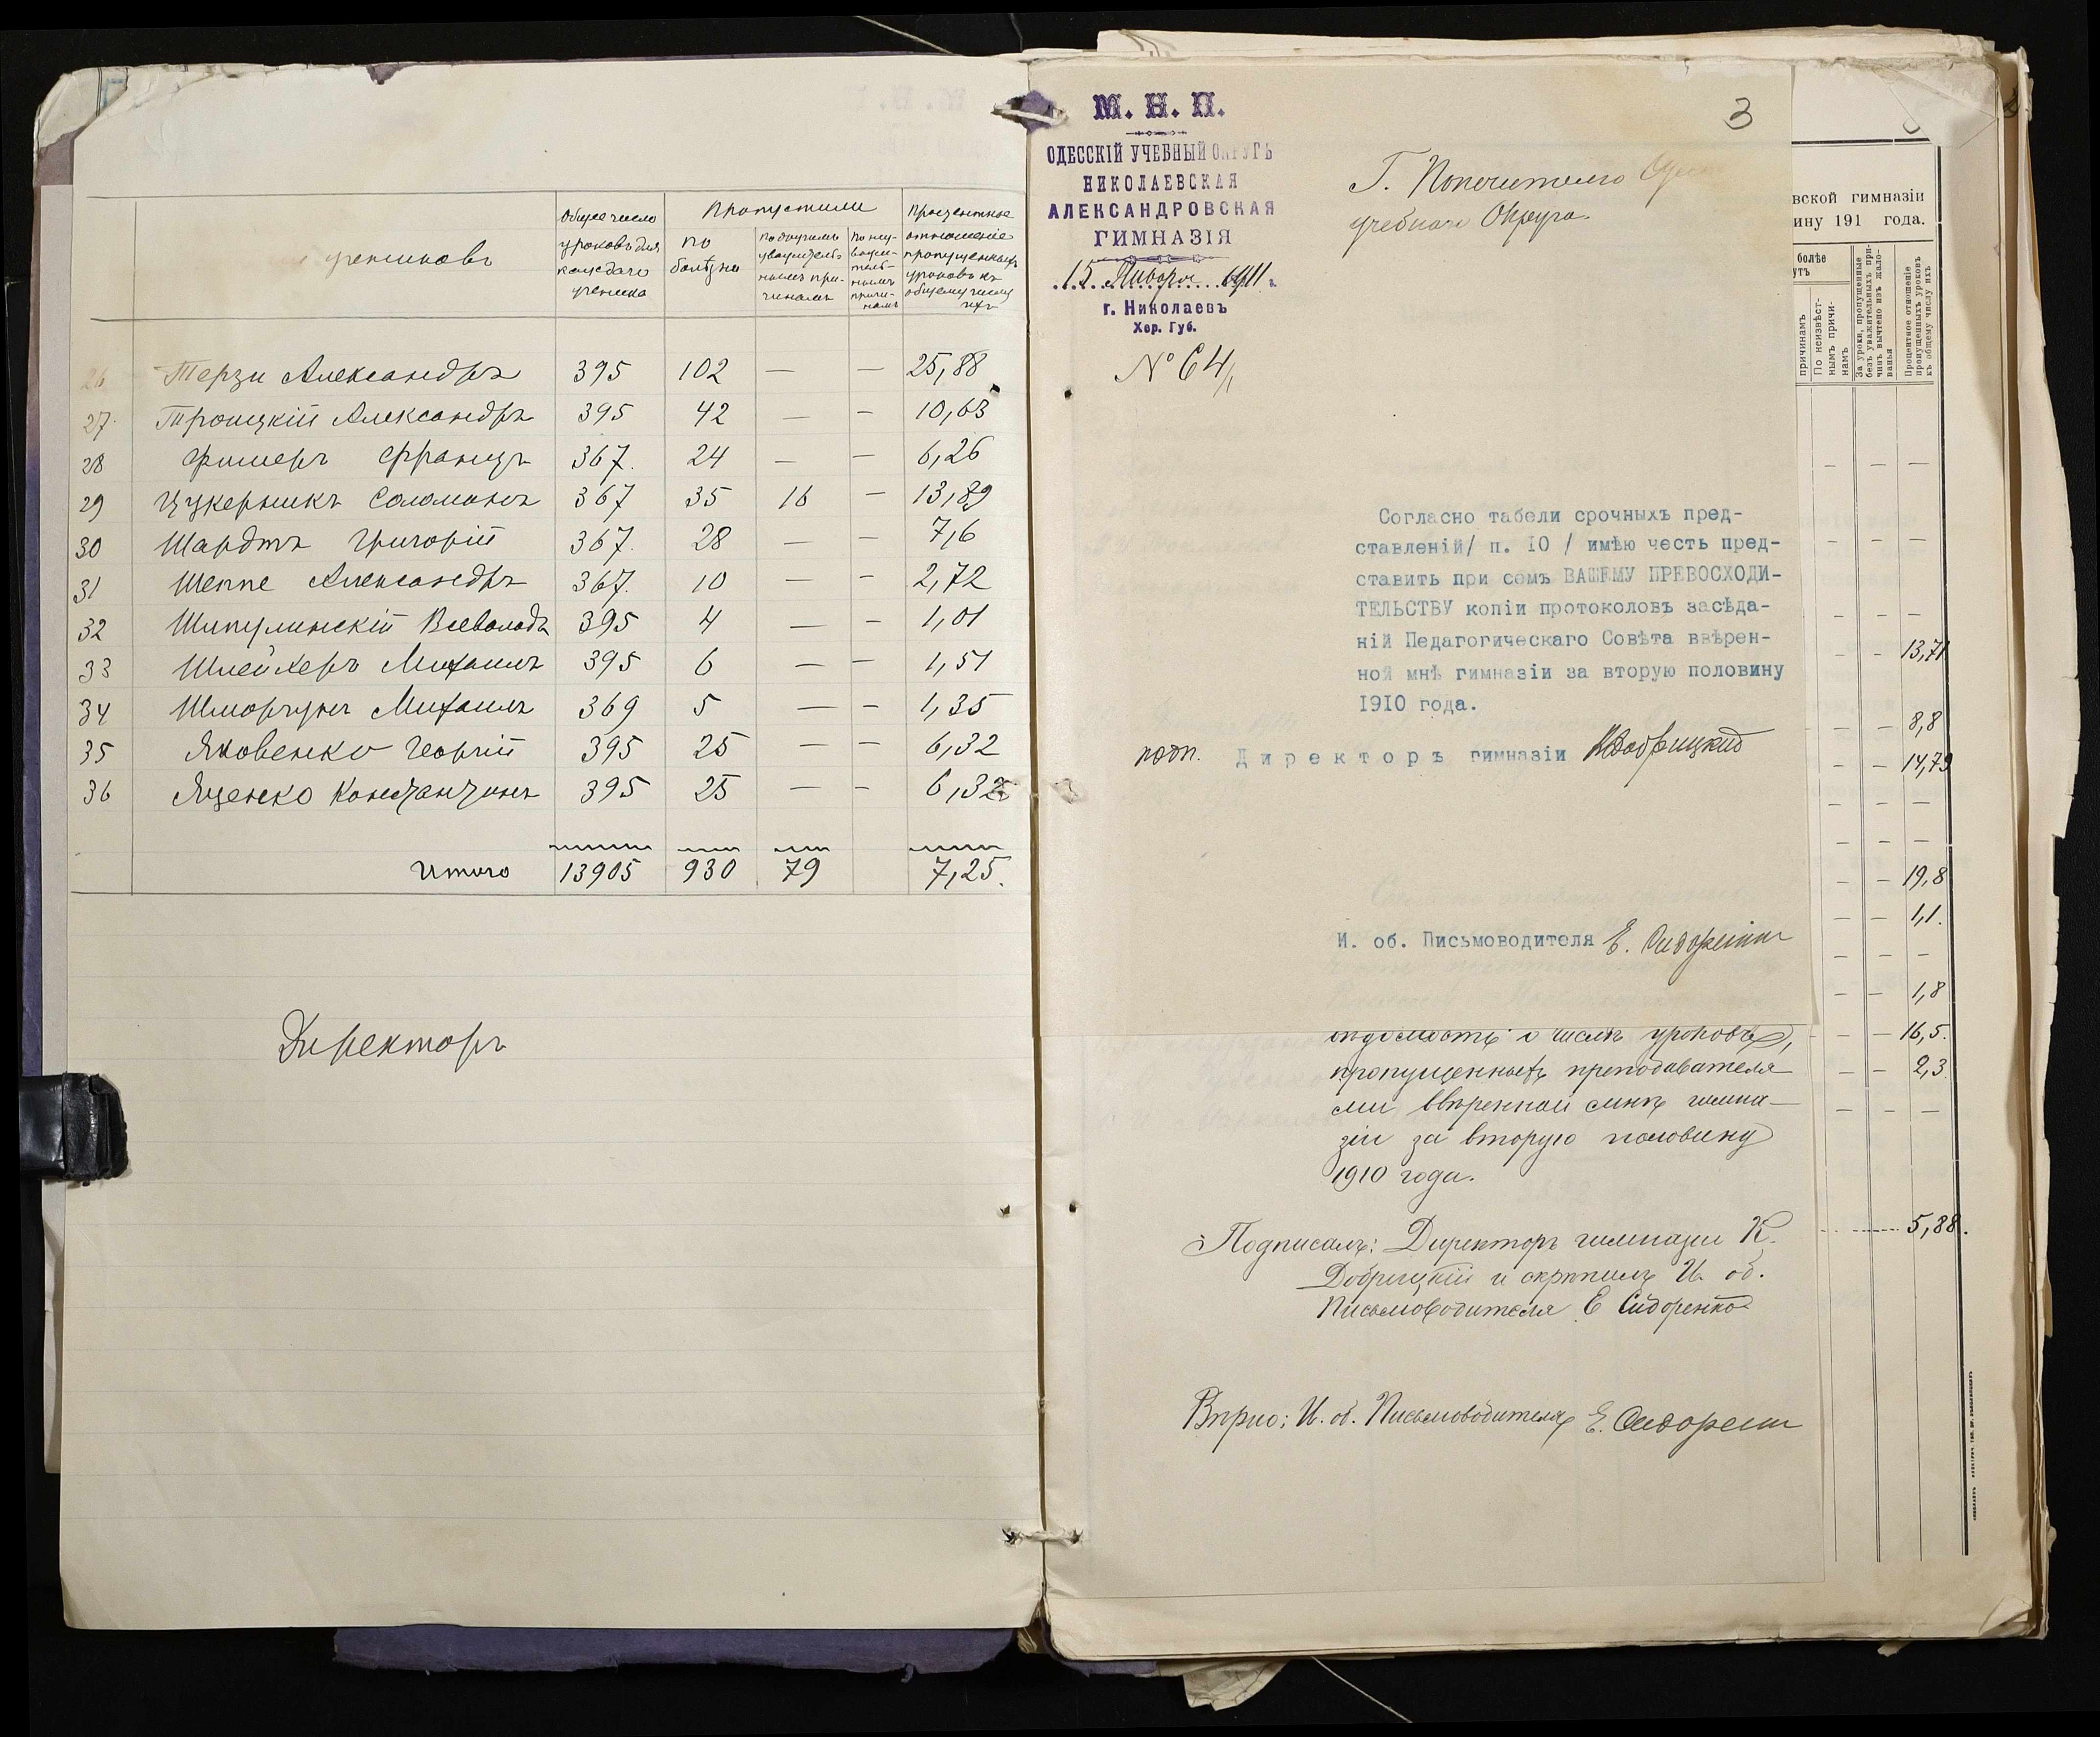 учениковъ
Общее число
уроковъ для
каждаго
ученика
Пропустили
по
болѣзни
По другимъ
уважитель-
нымъ при-
чинамъ
По неу-
важи-
тель-
нымъ
причи-
намъ
Процентное
отношеніе
пропущенныхъ
уроковъ къ
общему числу
ихъ
26 Терзи Александръ 395 102 — — 25,88
27. Троицкій Александръ 395 42 — — 10,63
28 Фишеръ Францъ 367. 24 — — 6,26
29 Цукерникъ Соломонъ 367 35 16 — 13,89
30 Шардтъ Григорій 367. 28 — — 7,6
31 Шеппе Александръ 367. 10 — — 2,72
32 Шипулинскій Всеволодъ 395 4 — — 1,01
33 Шлейхеръ Михаилъ 395 6 — — 1,51
34 Шморгунъ Михаилъ 369 5 — — 1,35
35 Яковенко Георгій 395 25 — — 6,32
36 Яценко Константинъ 395 25 — — 6,32
Итого 13905 930 79 7,25.
Директоръ
М. Н. П.
ОДЕССКІЙ УЧЕБНЫЙ ОКРУГЪ
НИКОЛАЕВСКАЯ
АЛЕКСАНДРОВСКАЯ
ГИМНАЗІЯ
15 Января 1911 г.
г. Николаевъ
Хер. Губ.
№ 64/1
3
Г. Попечителю
учебнаго Округа.
Согласно табели срочныхъ пред-
ставленій/ п. 10 / имѣю честь пред-
ставить при семъ ВАШЕМУ ПРЕВОСХОДИ-
ТЕЛЬСТВУ копіи протоколовъ засѣда-
ній Педагогическаго Совѣта ввѣрен-
ной мнѣ гимназіи за вторую половину
1910 года.
подп. Директоръ гимназіи К Добрицкій
И. об. Письмоводителя Е. Сидоренко
вѣдомость о числѣ уроковъ,
пропущенныхъ преподавателя
ми ввѣренной мнѣ гимна-
зіи за вторую половину
1910 года.
Подписалъ: Директоръ гимназіи К.
Добрицкій и скрѣпилъ И. об.
Письмоводителя Е Сидоренко
Вѣрно: И. об. Письмоводителя Е. Сидоренко
вской гимназіи
ину 191 года.
болѣе
утъ
причинамъ
По неизвѣст-
нымъ причи-
намъ
За уроки, пропущенные
безъ уважительныхъ при-
чинъ вычтено изъ жало-
ванья
Процентное отношеніе
пропущенныхъ уроковъ
къ общему числу ихъ
— — —
— — —
— — —
— — 13,71
— — 8,8
— — 14,79
— — —
— — —
— — 19,8
— — 1,1.
— — —
— — 1,8
— — 16,5.
— — 2,3
— — —
5,88.